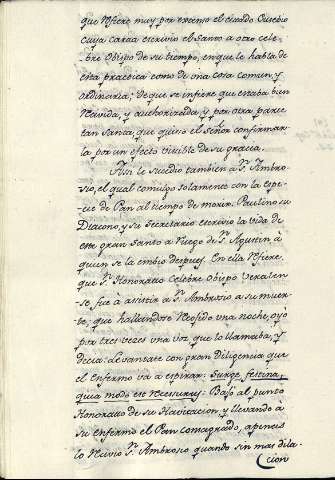 que refiere muy por extenso el citado Eusebio
cuya carta escrivio el santo a otro cele-
bre obispo de su tiempo, en que le habla de
esta practica como de una cosa comun y
ordinaria; De que se infiere que estaba bien
recivida, y authorizada y por otra parte
tan Santa, que quiso el Señor confirmar-
la por un efecto visible de su gracia.
Assi le sucedio tambien a Sn. Ambro-
sio, el qual comulgo solamente con la espe-
cie de Pan al tiempo de morir. Paulino su
Diacono y su Secretario escrivio la vida de
este gran Santo a ruego de Sn. Agustin à
quien se la embio despues. En ella refiere,
que Sn. Honorato celebre obispo Vercelen-
se fue à asistir a Sn. Ambrosio a su muer-
te, que hallandose recogido una noche, oyò
por tres veces una voz, que lo llamaba, y
decia: Levantate con gran diligencia que
el enfermo va a espirar: Surge, festina,
quia modo est recessurus: Bajò al punto
Honorato de su havitacion y llevando à
su enfermo el Pan consagrado, apenas
lo recivio Sn. Ambrosio quando sin mas dila-
cion